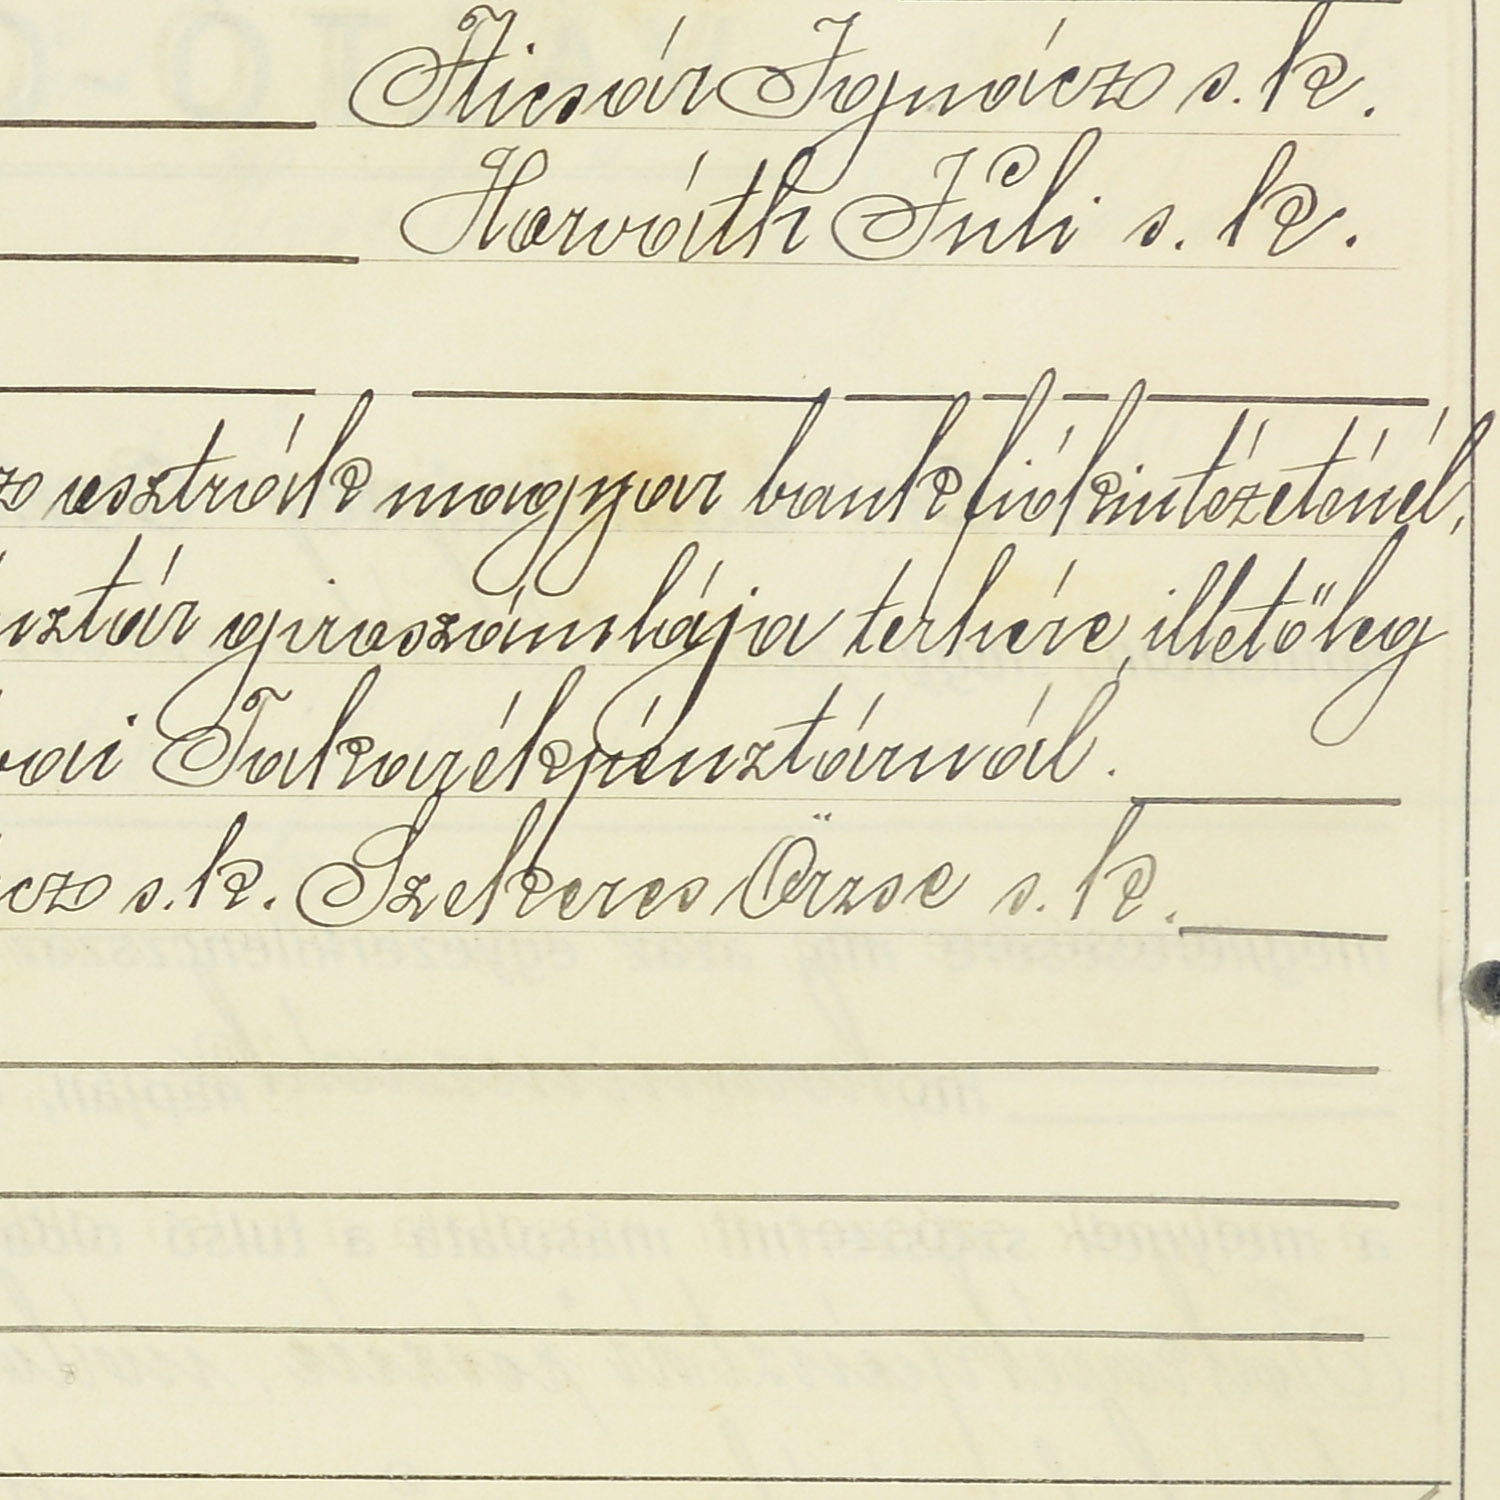 Hicsár Ignácz s. k.
Horváth Juli s. k.
osztrák magyar bank fiókintézeténél,
girószámlája terhére, illetőleg
Takarékpénztárnál.
s. k. Szekeres Örzse s. k.